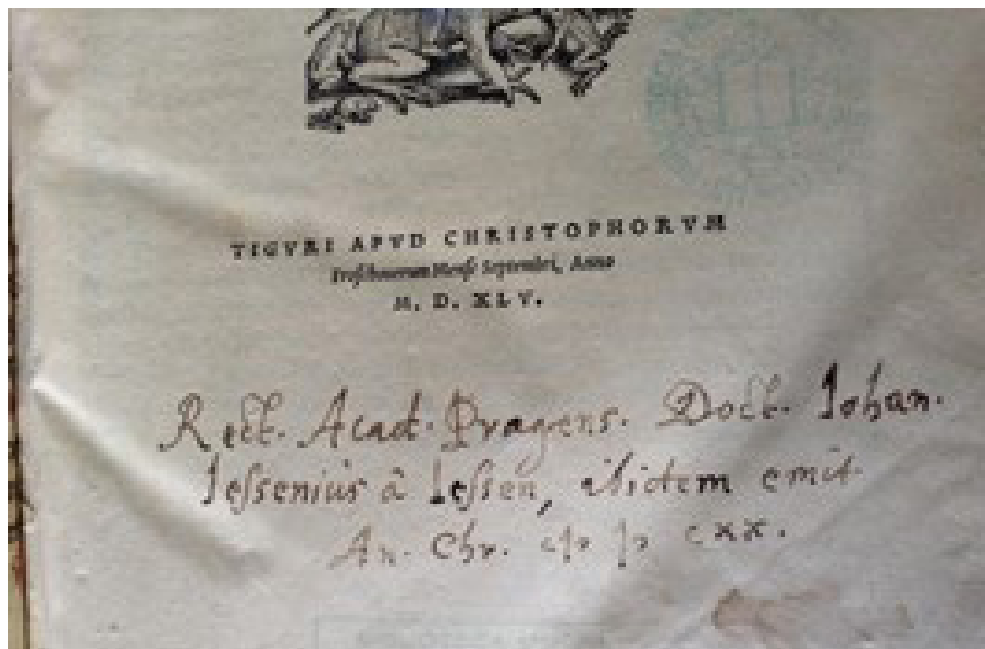 TIGVRI APVD CHRISTOPHORVM
Froschouerum Mense Septembri, Anno
M. D. XLV.
Rect. Acad. Pragens. Doct. Iohan.
Iessenius â Iessen, ibidem emit
An. Chr. cIↄ Iↄ cxx.